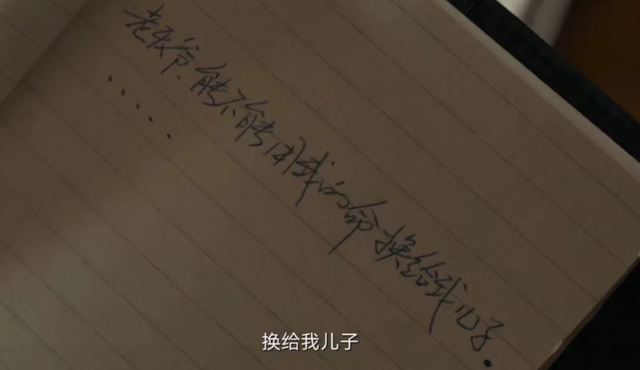 老天爷，能不能用我的命换给我儿子.
.....
换给我儿子